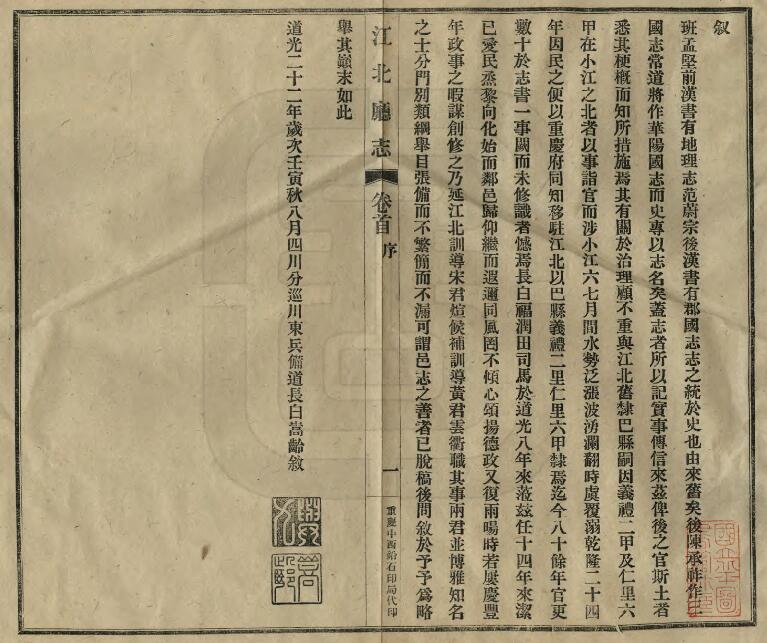 叙
班孟堅前漢書有地理志范蔚宗後漢書有郡國志志之統於史也由來舊矣後陳承祚作三
國志常道將作華陽國志而史專以志名矣蓋志者所以記實事傳信來茲俾後之官斯土者
悉其梗概而知所措施焉其有關於治理顧不重與江北舊隸巴縣嗣因義禮二甲及仁里六
甲在小江之北者以事詣官而涉小江六七月間水勢泛漲波湧瀾翻時虞覆溺乾隆二十四
年因民之便以重慶府同知移駐江北以巴縣義禮二里仁里六甲隸焉迄今八十餘年官更
數十於志書一事闕而未修識者憾焉長白福潤田司馬於道光八年來蒞茲任十四年來潔
己愛民烝黎向化始而鄰邑歸仰繼而遐邇同風罔不傾心頌揚德政又復雨暘時若屢慶豐
年政事之暇謀創修之乃延江北訓導宋君煊候補訓導黃君雲衢職其事兩君並博雅知名
之士分門別類綱舉目張備而不繁簡而不漏可謂邑志之善者已脫稿後問敘於予予爲略
舉其巔末如此
道光二十二年歲次壬寅秋八月四川分巡川東兵備道長白嵩齡敘
江北廳志
卷首
序
一
重慶中西鉛石印局代印